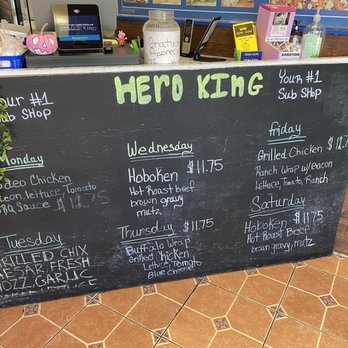 HERO KING
HERO KING
Your #1
Sub Shop
Your #1
Sub Shop
Monday
Rodeo Chicken
Bacon, lettuce, Tomato
BBQ Sauce $12.75
Tuesday
GRILLED CHIX
CAESAR FRESH
MOZZ GARLIC
Wednesday
Hoboken $11.75
Hot Roast beef
brown gravy
mutz
Thursday $11.75
Buffalo Wrap
Grilled chicken
Lettuce Tomato
Blue cheese
Friday
Grilled Chicken $12.7
Ranch Wrap w/Bacon
lettuce, Tomato, Ranch
Saturday
Hoboken $11.75
Hot Roast Beef
brown gravy mutz